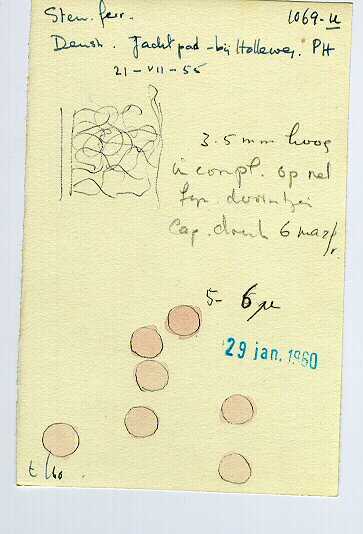 Stem. ferr. 1069-u
Densh. Jachtpad - bij Holleweg. PH
21 - VII - 55
3.5 mm hoog
in compl. op net
Cap. draad 6 maz/
5- 6 µ
29 jan. 1960
t/60